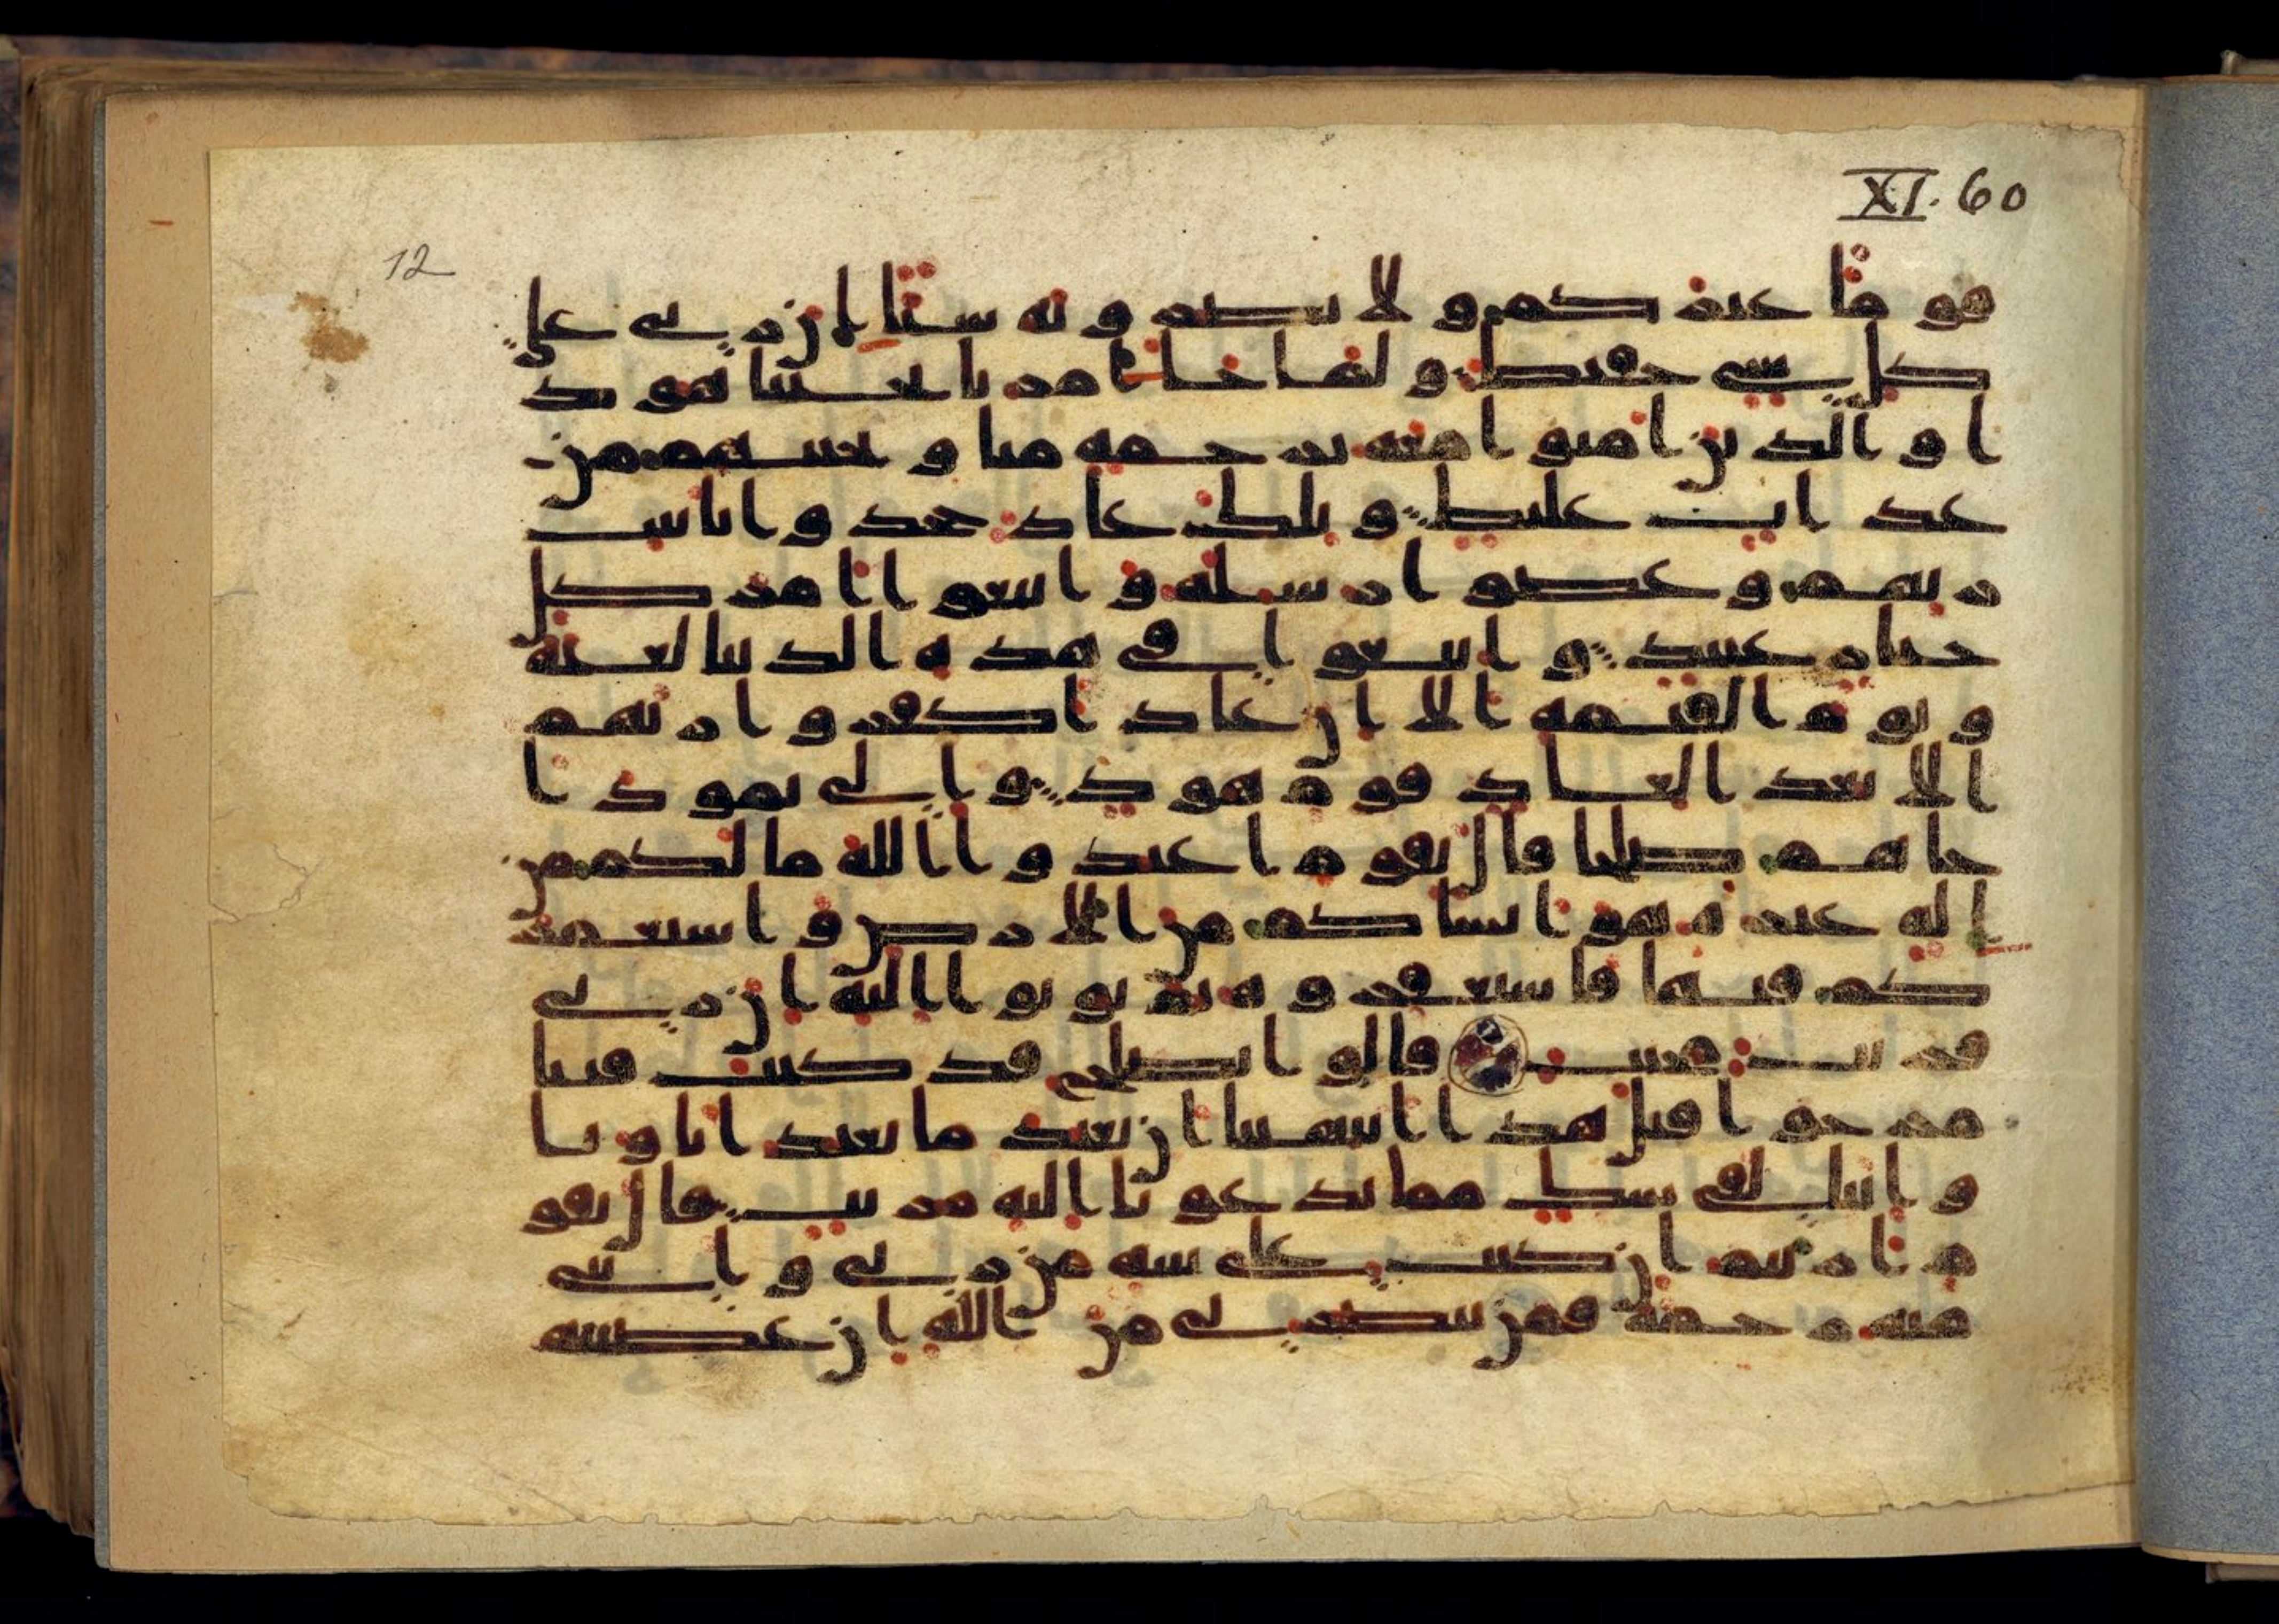 XI. 60
12
قوما غيركم ولا تضروه شيا ان ربي على
كل شي حفيظ ولما جا امرنا نجينا هود
ا والذين امنوا معه برحمة منا ونجينهم من
عذاب غليظ وتلك عاد جحدوا بايت
ربهم وعصوا رسله واتبعوا امر كل
جبار عنيد واتبعوا في هذه الدنيا لعنة
ويوم القيمة الا ان عادا كفروا ربهم
الا بعدا لعاد قوم هود والى ثمود ا
خاهم صلحا قال يقوم اعبدوا الله ما لكم من
اله غيره هو انشاكم من الارض واستعمر
كم فيها فاستغفروه ثم توبوا اليه ان ربي
قريب مجيب قالوا يصلح قد كنت فينا
مرجوا قبل هذا اتنهينا ان نعبد ما يعبد اباونا
واننا لفي شك مما تدعونا اليه مريب قال يقو
م اريتم ان كنت على بينة من ربي واتيني
منه رحمة فمن ينصرني من الله ان عصيته